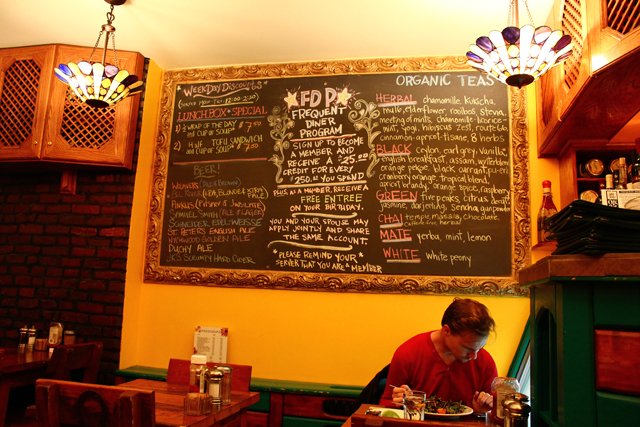 WEEKDAY DISCOUNTS
LUNCH BOX SPECIAL
1) ½ WRAP OF THE DAY
AND CUP OF SOUP $7
2) HALF TOFU SANDWICH
AND CUP OF SOUP $7
BEER!
SAMUEL SMITH
ST. PETERS ENGLISH ALE
WYCHWOOD GOLDEN ALE
DUCHY ALE
JCS SCRUMPY HARD CIDER
FDP
FREQUENT
DINER
PROGRAM
SIGN UP TO BECOME
A MEMBER AND
RECEIVE A $25.00
CREDIT FOR EVERY
$250.00 YOU SPEND
PLUS, AS A MEMBER, RECEIVE A
FREE ENTREE
ON YOUR BIRTHDAY.
YOU AND YOUR SPOUSE MAY
APPLY JOINTLY AND SHARE
THE SAME ACCOUNT.
* PLEASE REMIND YOUR *
SERVER THAT YOU ARE A MEMBER
ORGANIC TEAS
HERBAL chamomile, kukicha,
elderflower, rooibos, stevia,
meeting of mints, chamomile + licorice
mint, yogi, hibiscus zest, route 66,
cinnamon-apricot tisane, 8 herb
BLACK ceylon, earl grey, vanilla,
english breakfast, assam,
orange pekoe, black currant,
cranberry orange, tropical blend,
apricot brandy, orange spice, raspberry
GREEN five peaks, citrus, decaf,
jasmine, dao ying, sencha, gunpowder
CHAI temple, masala, chocolate,
MATE yerba, mint, lemon
WHITE white peony